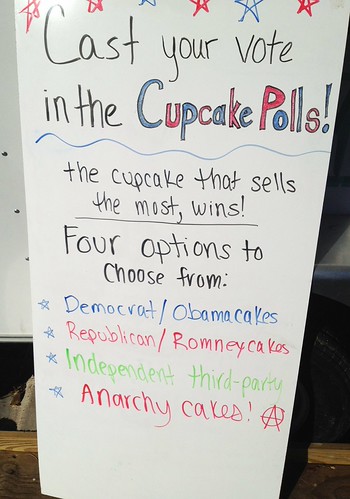 Cast your vote
in the Cupcake Polls!
the cupcake that sells
the most, wins!
Four options to
choose from:
Democrat/Obamacakes
Republican/Romneycakes
Independent third-party
Anarchy cakes! Ⓐ